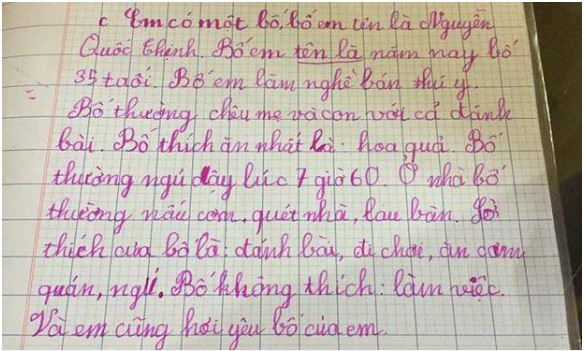 Em có một bố, bố em tên là Nguyễn
Quốc Thịnh. Bố em tên là năm nay bố
35 tuổi. Bố em làm nghề bán thú y.
Bố thường chêu mẹ và con với cả đánh
bài. Bố thích ăn nhất là: hoa quả. Bố
thường ngủ dậy lúc 7 giờ 60. Ở nhà bố
thường nấu cơm, quét nhà, lau bàn. Sở
thích của bố là: đánh bài, đi chơi, ăn cơm
quán, ngủ. Bố không thích: làm việc.
Và em cũng hơi yêu bố của em.